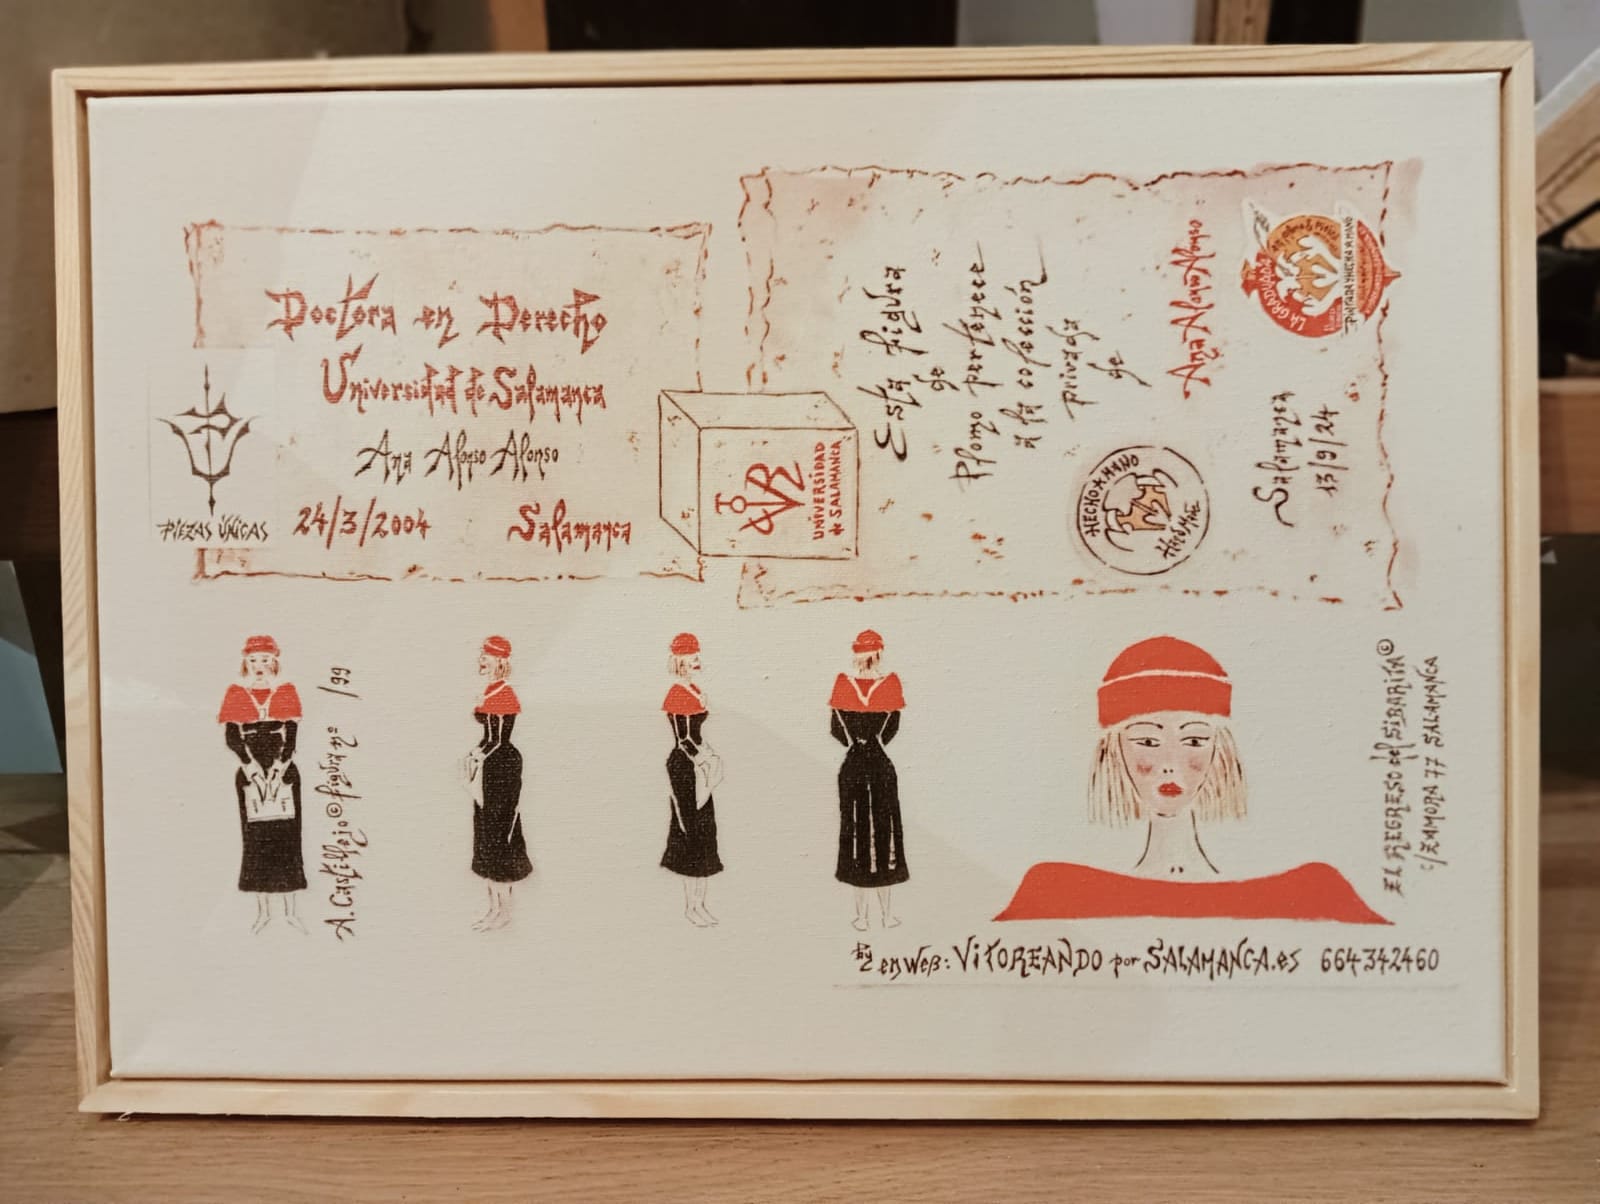 Doctora en Derecho
Universidad de Salamanca
Ana Alonso Alonso
24/3/2004 Salamanca
PIEZAS ÚNICAS
UNIVERSIDAD
de SALAMANCA
Esta figura
de
Plomo pertenece
a la colección
privada
de
HECHO A MANO
Salamanca
13/9/24
LA GRADUADA
PINTADA Y HECHA A MANO
A. Castillejo © figura nº /99
EL REGRESO del SIBARITA ©
C/ ZAMORA 77 SALAMANCA
by
en WEB: VITOREANDO por SALAMANCA.es 664342460